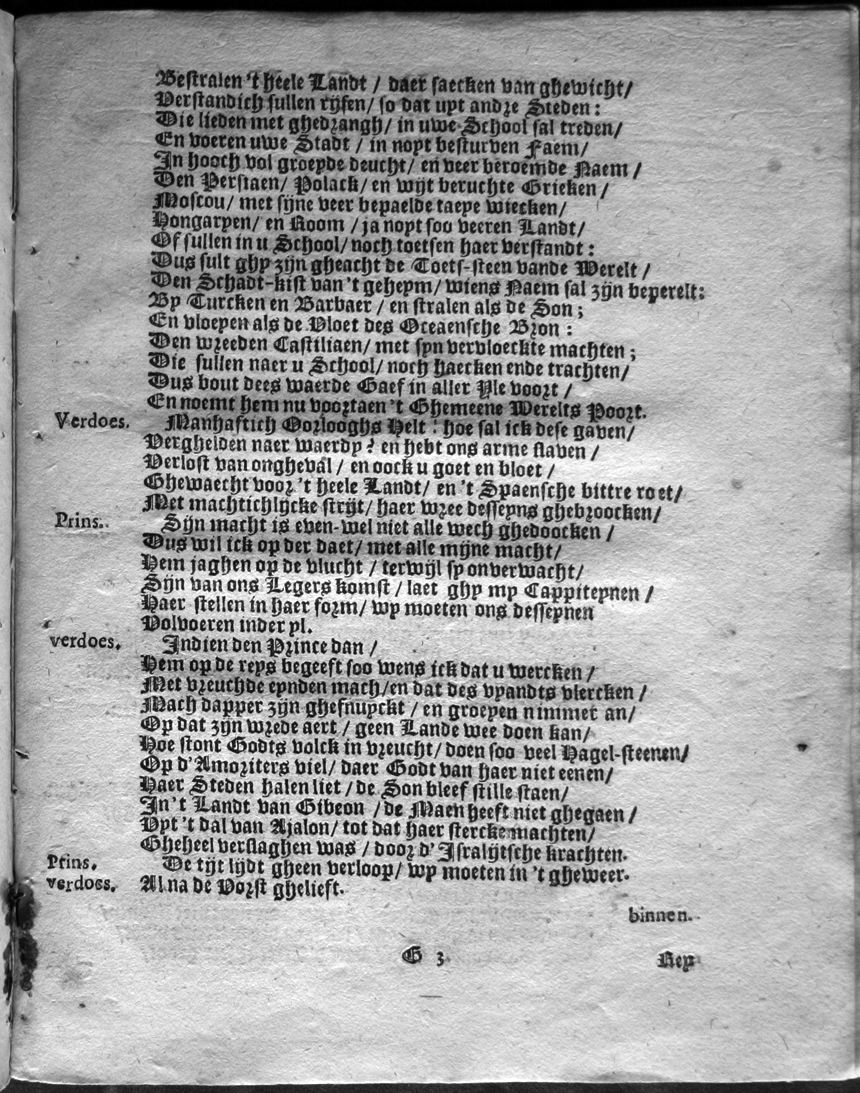 Bestralen 't heele Landt / daer saecken van ghewicht/
Verstandich sullen rijsen/ so dat uyt andre Steden:
Die lieden met ghedrangh/ in uwe School sal treden/
En voeren uwe Stadt / in noyt besturven Faem/
In hooch vol groeyde deucht/ en veer beroemde Naem /
Den Perstaen/ Polack/ en wijt beruchte Grieken /
Moscou/ met sijne veer bepaelde taeye wiecken/
Hongaryen/ en Room / ja noyt soo veeren Landt/
Of sullen in u School/ noch toetsen haer verstandt:
Dus sult ghy zijn gheacht de Toets-steen vande Werelt /
Den Schadt-kist van 't geheym/ wiens Naem sal zijn beperelt:
By Turcken en Barbaer / en stralen als de Son;
En vloeyen als de Vloet des Oceaensche Bron:
Den wreeden Castiliaen/ met syn vervloeckte machten;
Die sullen naer u School/ noch haecken ende trachten/
Dus hout dees waerde Gaef in aller Yle voort /
En noemt hem nu voortaen 't Ghemeene Werelts Poort.
Verdoes. Manhaftich Oorlooghs Helt! hoe sal ick dese gaven/
Verghelden naer waerdy? en hebt ons arme slaven /
Verlost van ongheval / en oock u goet en bloet /
Ghewaecht voor 't heele Landt/ en 't Spaensche bittre roet/
Met machtichlijcke strijt/ haer wree desseyns ghebroocken/
Prins. Sijn macht is even-wel niet alle wech ghedoocken /
Dus wil ick op der daet/ met alle mijne macht/
Hem jaghen op de vlucht / terwijl sy onverwacht/
Sijn van ons Legers komst / laet ghy my Cappiteynen /
Haer stellen in haer form/ wy moeten ons desseynen
Volvoeren inder yl.
verdoes. Indien den Prince dan /
Hem op de reys begeeft soo wens ick dat u wercken /
Met vreuchde eynden mach/en dat des vyandts vlercken /
Mach dapper zijn ghesnuyckt / en groeyen nimmer an/
Op dat zijn wrede aert / geen Lande wee doen kan/
Hoe stont Godts volck in vreucht/ doen soo veel Hagel-steenen/
Op d'Amoriters viel/ daer Godt van haer niet eenen/
Haer Steden halen liet / de Son bleef stille staen/
In 't Landt van Gibeon / de Maen heeft niet ghegaen /
Uyt 't dal van Ajalon/ tot dat haer stercke machten/
Gheheel verslaghen was / door d' Isralijtsche krachten.
Prins. De tijt lijdt gheen verloop/ wy moeten in 't gheweer.
verdoes. Al na de Vorst ghelieft.
binnen.
G 3 Rey